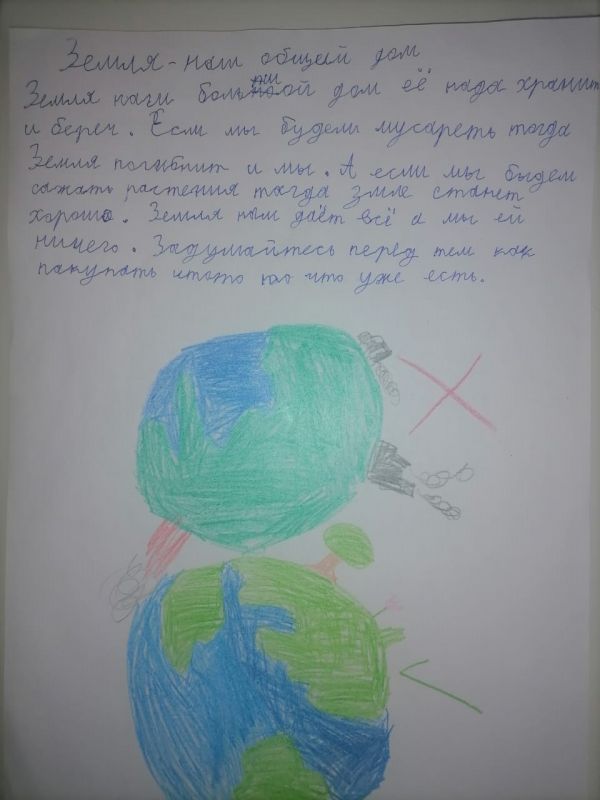 Земля - наш общий дом
Земля наш большой дом её нада хранит
и береч. Если мы будем мусареть тогда
Земля погибнит и мы. А если мы быдем
сажать растения тагда змле станет
хорошо. Земля нам даёт всё а мы ей
ничего. Задумайтесь перед тем как
пакупать что уже есть.